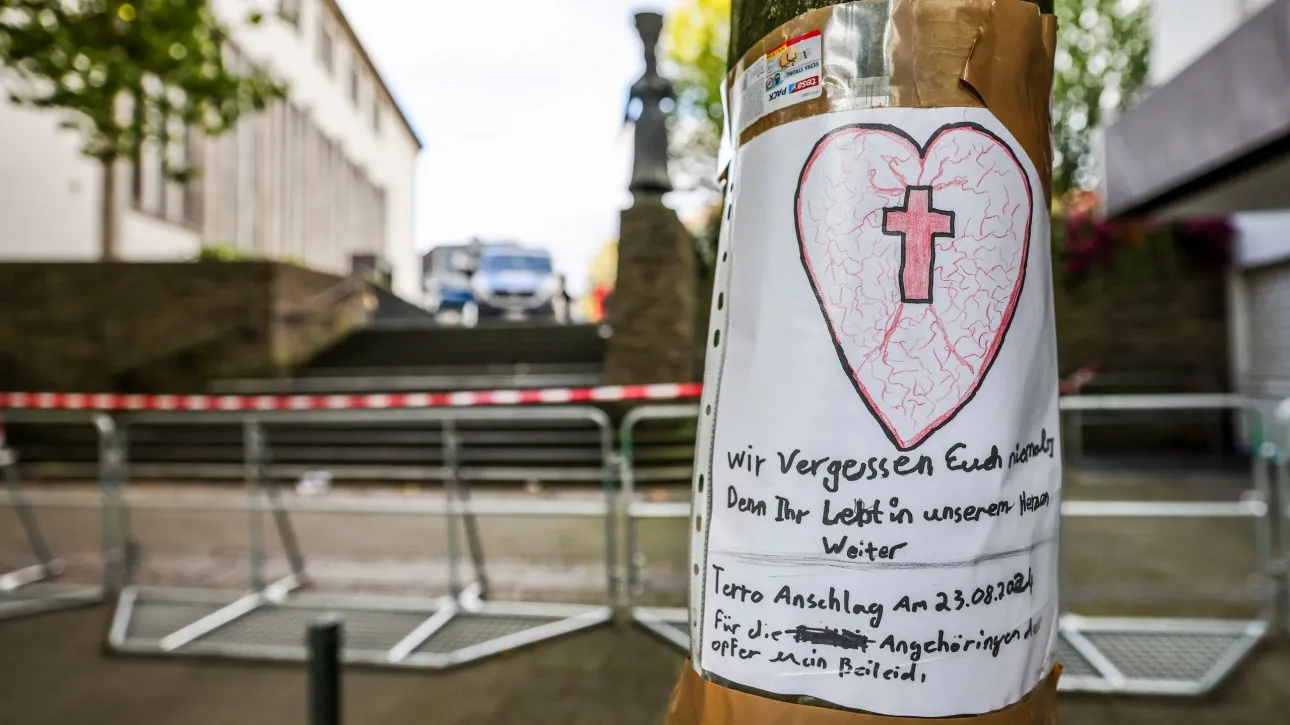 ULTRA STRONG
tesa PACK
wir Vergessen Euch niemals
Denn Ihr Lebt in unserem Herzen
Weiter
Terro Anschlag Am 23.08.2024
Für die Angehöringen der
opfer mein Beileid,